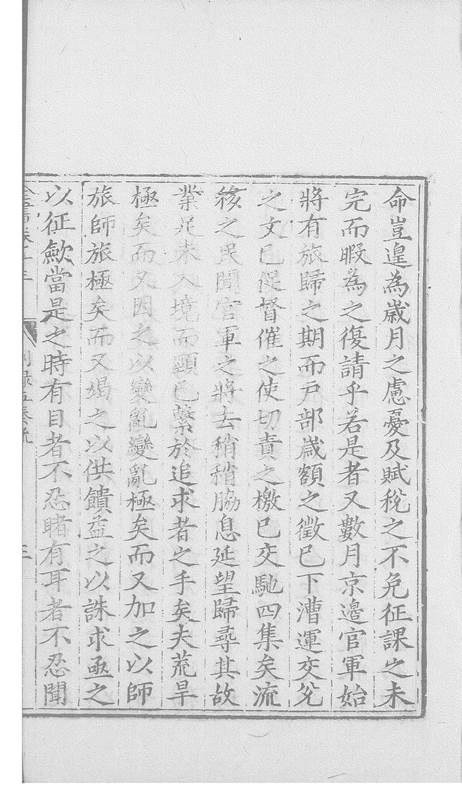 命豈遑為歳月之慮憂及賦稅之不免征課之未
完而暇為之復請乎若是者又數月京邊官軍始
將有旅歸之期而戶部歳額之徵已下漕運交兊
之文已促督催之使切責之檄已交馳四集矣流
移之民聞官軍之將去稍稍脇息延望歸尋其故
業足未入境而頸已繫於追求者之手矣夫荒旱
極矣而又因之以變亂變亂極矣而又加之以師
旅師旅極矣而又竭之以供饋益之以誅求亟之
以征歛當是之時有目者不忍睹有耳者不忍聞